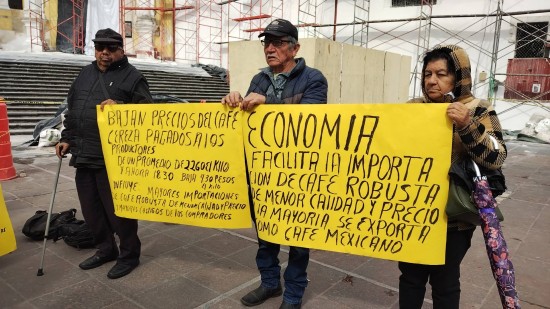 BAJAN PRECIOS DEL CAFE
CEREZA PAGADOS A
PRODUCTORES
DE UN PROMEDIO DE 22.60 EL KILO
Y AHORA 18.30 BAJA 4.30 PESOS
A KILO
INFORME MAYORES IMPORTACIONES
DE CAFE ROBUSTA DE MENOR CALIDAD Y PRECIO
DE LOS COMPRADORES
ECONOMIA
FACILITA LA IMPORTA
CION DE CAFE ROBUSTA
DE MENOR CALIDAD Y PRECIO
LA MAYORIA SE EXPORTA
COMO CAFE MEXICANO